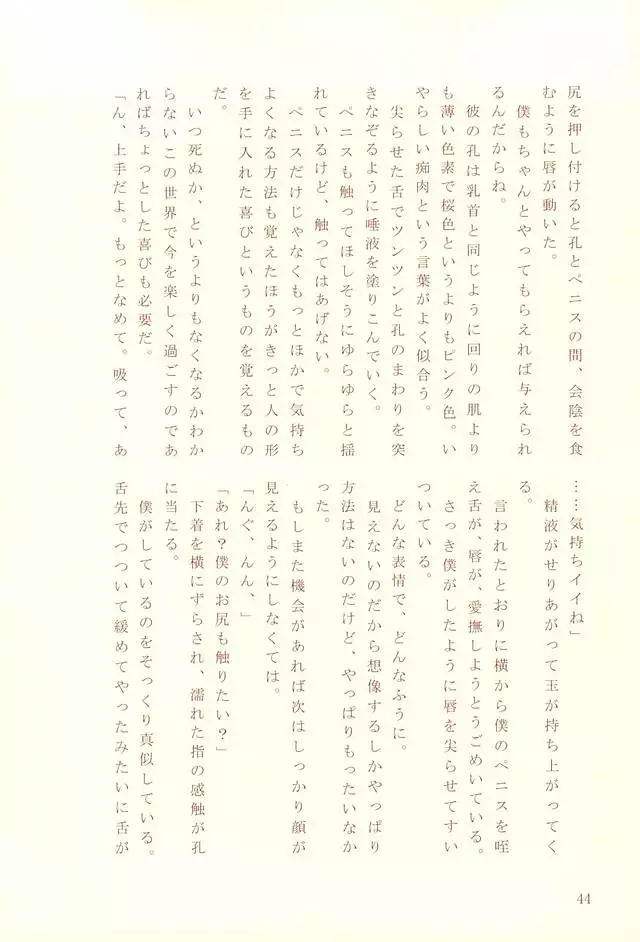 尻を押し付けると孔とペニスの間、会陰を食
むように唇が動いた。
　僕もちゃんとやってもらえれば与えられ
るんだからね。
　彼の孔は乳首と同じように回りの肌より
も薄い色素で桜色というよりもピンク色。い
やらしい痴肉という言葉がよく似合う。
　尖らせた舌でツンツンと孔のまわりを突
きなぞるように唾液を塗りこんでいく。
　ペニスも触ってほしそうにゆらゆらと揺
れているけど、触ってはあげない。
　ペニスだけじゃなくもっとほかで気持ち
よくなる方法も覚えたほうがきっと人の形
を手に入れた喜びというものを覚えるもの
だ。
　いつ死ぬか、というよりもなくなるかわか
らないこの世界で今を楽しく過ごすのであ
ればちょっとした喜びも必要だ。
「ん、上手だよ。もっとなめて。吸って、あ
……気持ちイイね」
　精液がせりあがって玉が持ち上がってく
る。
　言われたとおりに横から僕のペニスを咥
え舌が、唇が、愛撫しようとうごめいている。
　さっき僕がしたように唇を尖らせてすい
ついている。
　どんな表情で、どんなふうに。
　見えないのだから想像するしかやっぱり
方法はないのだけど、やっぱりもったいなか
った。
　もしまた機会があれば次はしっかり顔が
見えるようにしなくては。
「んぐ、んん、」
「あれ？僕のお尻も触りたい？」
　下着を横にずらされ、濡れた指の感触が孔
に当たる。
　僕がしているのをそっくり真似している。
舌先でつついて緩めてやったみたいに舌が
44